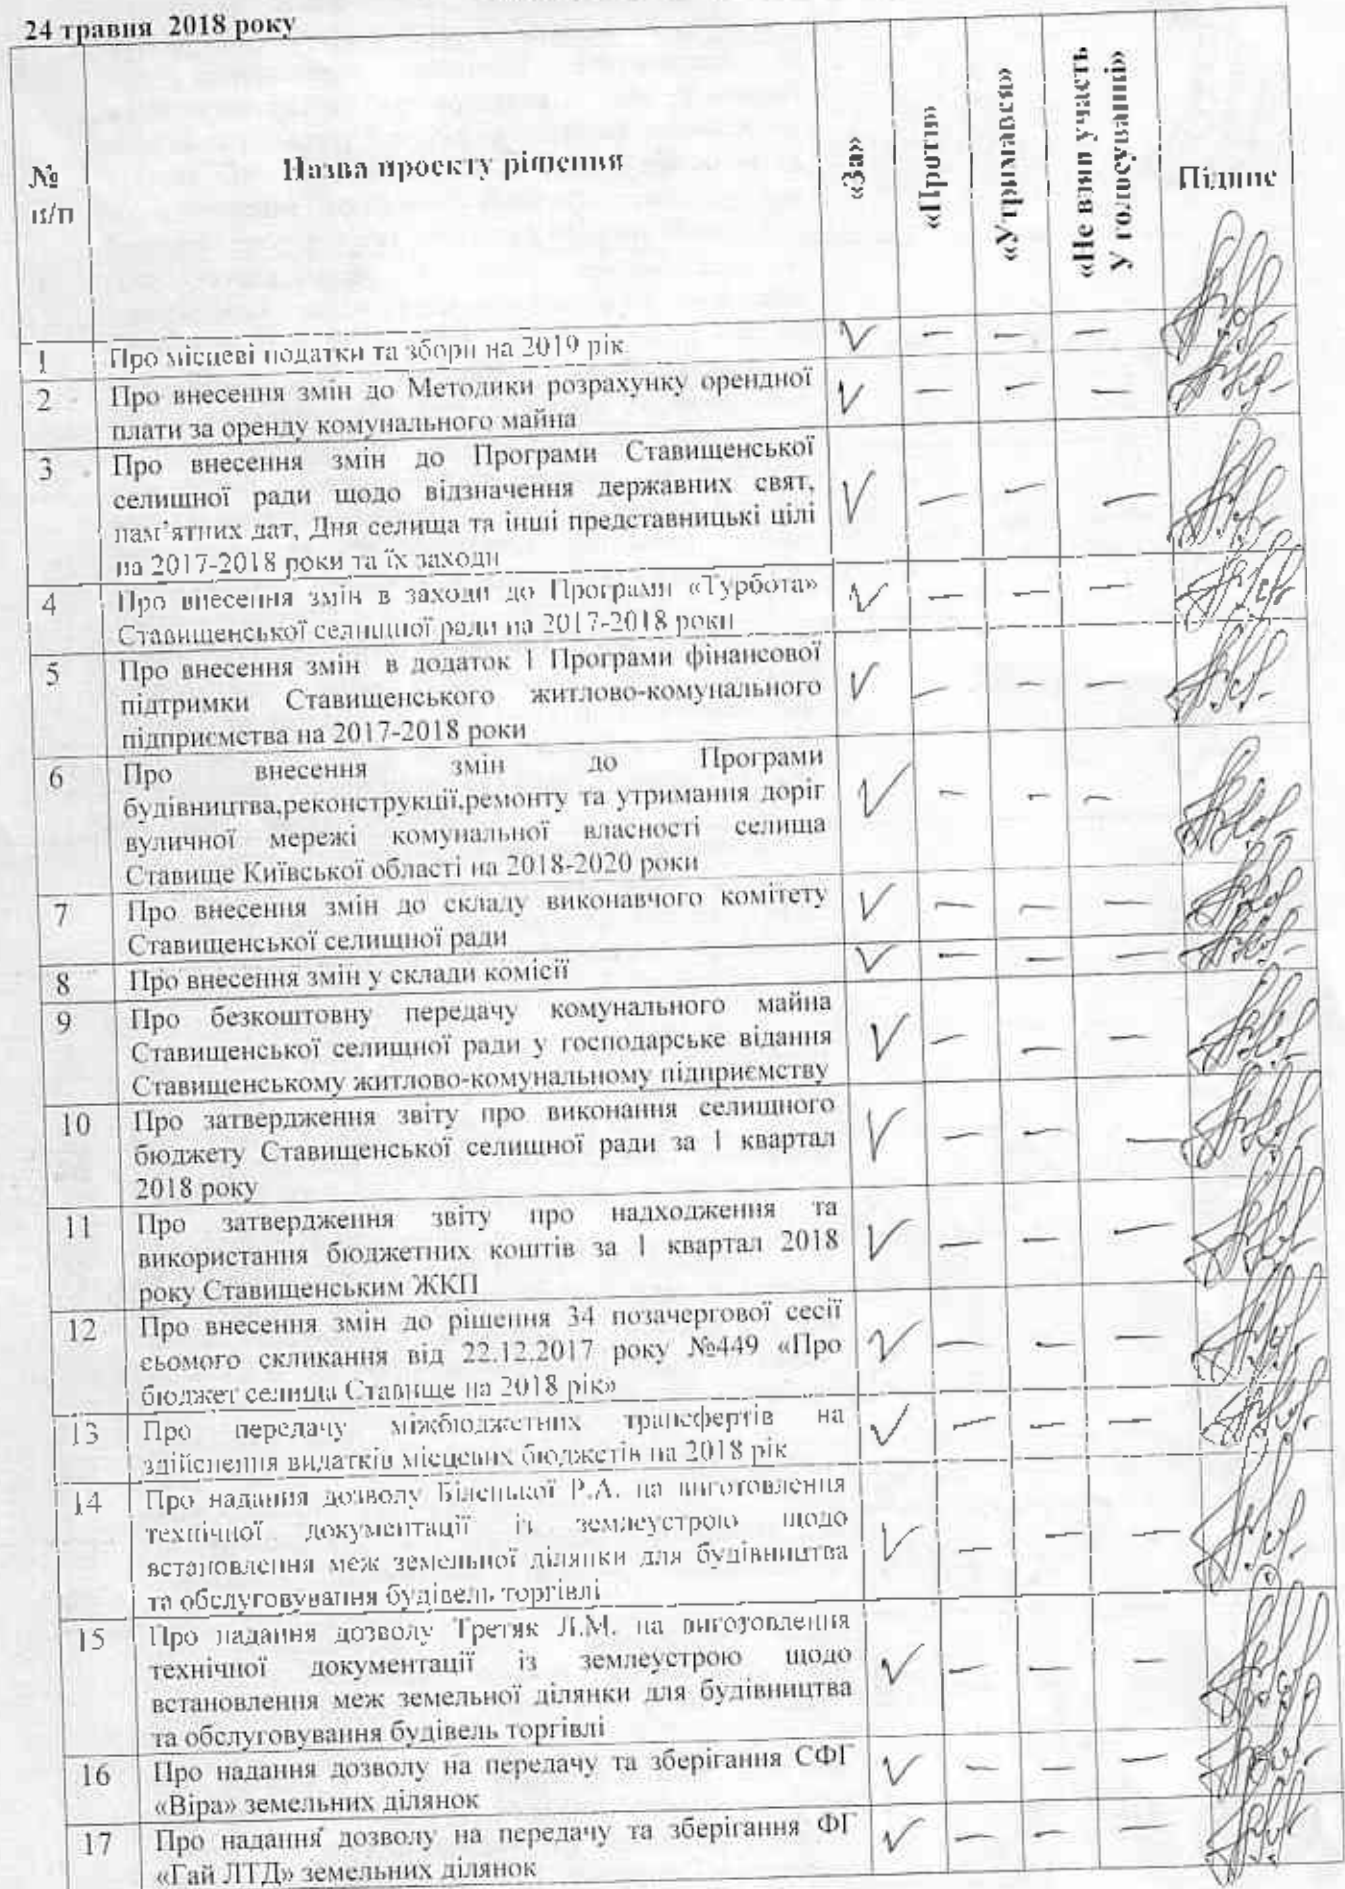 24 травня 2018 року
№ п/п
Назва проекту рішення
«За»
«Проти»
«Утримався»
«Не взяв участь
У голосуванні»
Підпис
1 Про місцеві податки та збори на 2019 рік. V — — —
2 Про внесення змін до Методики розрахунку орендної V — — —
плати за оренду комунального майна
3 Про внесення змін до Програми Ставищенської
селищної ради щодо відзначення державних свят, V — — —
пам’ятних дат, Дня селища та інші представницькі цілі
на 2017-2018 роки та їх заходи
4 Про внесення змін в заходи до Програми «Турбота» V — — —
Ставищенської селищної ради на 2017-2018 роки
5 Про внесення змін в додаток 1 Програми фінансової
підтримки Ставищенського житлово-комунального V — — —
підприємства на 2017-2018 роки
6 Про внесення змін до Програми
будівництва,реконструкції,ремонту та утримання доріг V — — —
вуличної мережі комунальної власності селища
Ставище Київської області на 2018-2020 роки
7 Про внесення змін до складу виконавчого комітету V — — —
Ставищенської селищної ради
8 Про внесення змін у склади комісії V — — —
9 Про безкоштовну передачу комунального майна
Ставищенської селищної ради у господарське відання V — — —
Ставищенському житлово-комунальному підприємству
10 Про затвердження звіту про виконання селищного
бюджету Ставищенської селищної ради за 1 квартал V — — —
2018 року
11 Про затвердження звіту про надходження та
використання бюджетних коштів за 1 квартал 2018 V — — —
року Ставищенським ЖКП
12 Про внесення змін до рішення 34 позачергової сесії
сьомого скликання від 22.12.2017 року №449 «Про V — — —
бюджет селища Ставище на 2018 рік»
13 Про передачу міжбюджетних трансфертів на V — — —
здійснення видатків місцевих бюджетів на 2018 рік
14 Про надання дозволу Біленької Р.А. на виготовлення
технічної документації із землеустрою щодо
встановлення меж земельної ділянки для будівництва V — — —
та обслуговування будівель торгівлі
15 Про надання дозволу Третяк Л.М. на виготовлення
технічної документації із землеустрою щодо V — — —
встановлення меж земельної ділянки для будівництва
та обслуговування будівель торгівлі
16 Про надання дозволу на передачу та зберігання СФГ V — — —
«Віра» земельних ділянок
17 Про надання дозволу на передачу та зберігання ФГ V — — —
«Гай ЛТД» земельних ділянок